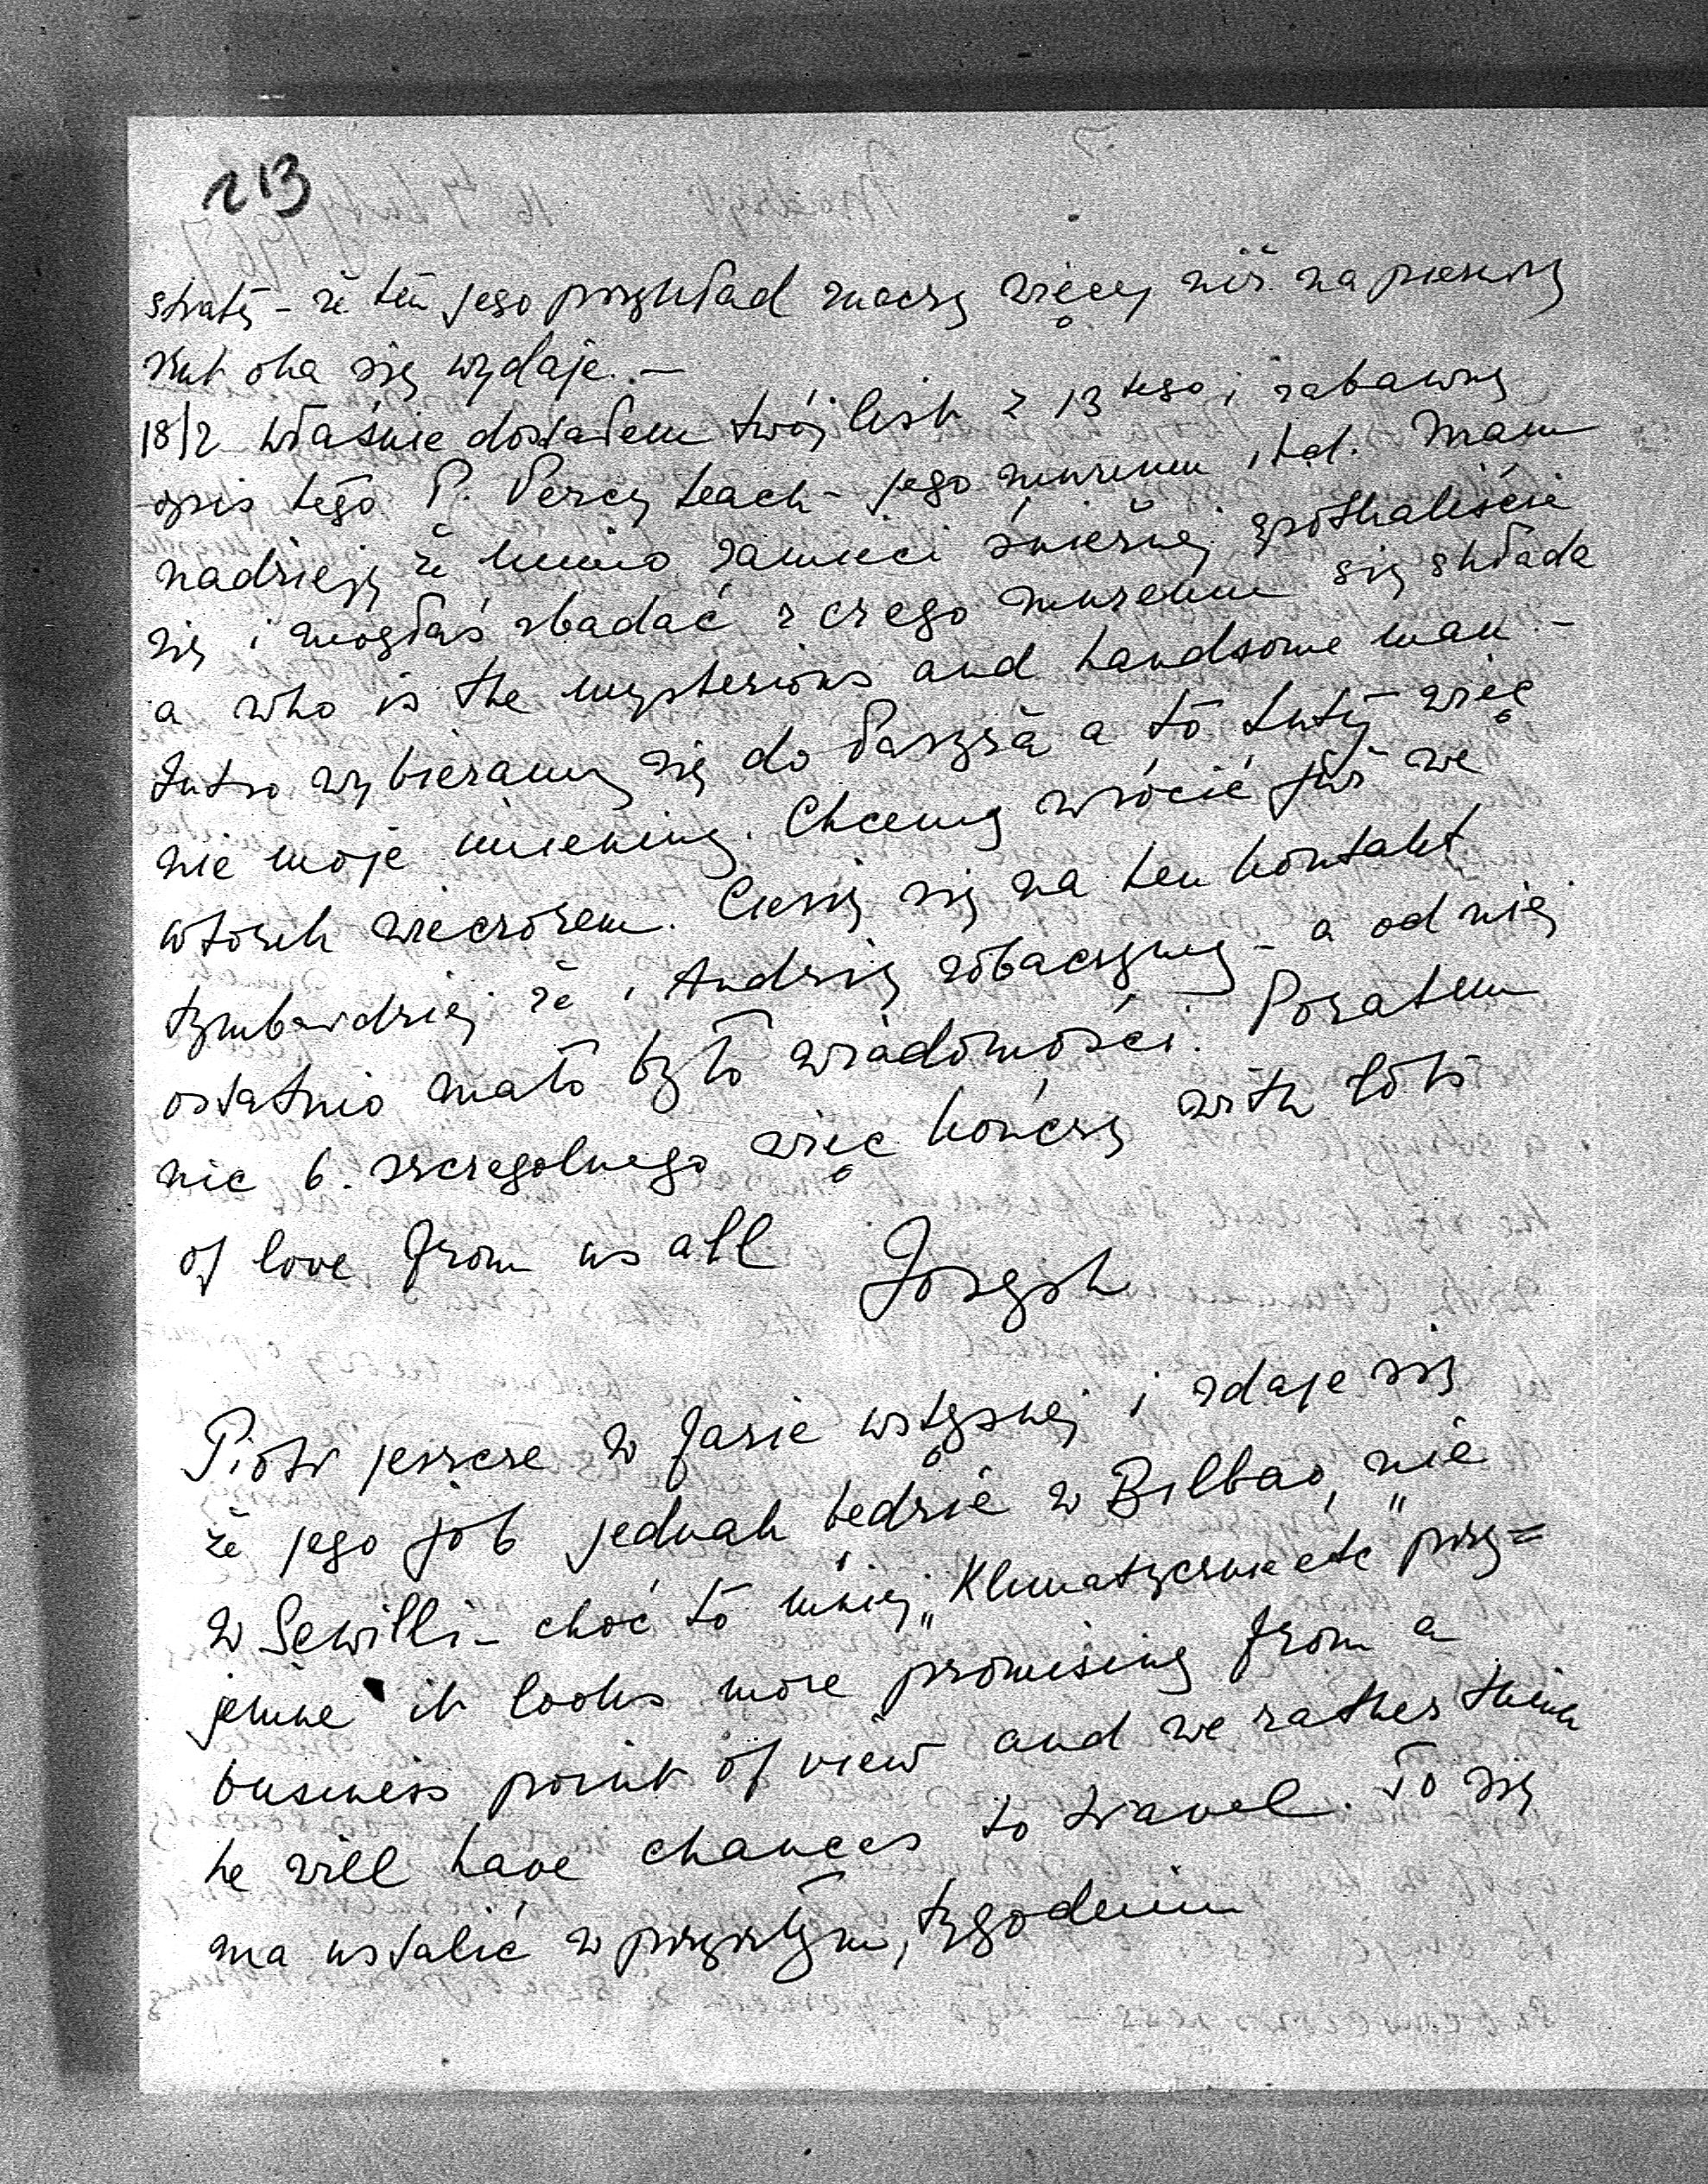 213
stratę – że ten jego przykład znaczy więcej niż na pierwszy
rzut oka się wydaje. –
18/2 właśnie dostałem twój list z 13 tego i zabawny
opis tego P. Percy teach – jego muzeum itd. Mam
nadzieję że mimo zamieci śnieżnej spotkaliście
się i mogłaś zbadać z czego muzeum się składa
a who is the mysterious and handsome man. –
Jutro wybieramy się do Paryża a to tutej więc
nie moje imieniny. Chcemy wrócić już we
wtorek wieczorem. Cieszę się na ten kontakt
tymbardziej że i Andrzę zobaczymy – a od niej
ostatnio mało było wiadomości. Pozatem
nic b. szczegolnego więc kończę with lots
of love from us all Joseph
Piotr jeszcze w fazie wstępnej i zdaje się
że jego job jednak będzie w Bilbao, nie
w Sewilli – choć to mniej „Klimatycznie etc" przy=
jemne it looks more promising from a
business point of view and we rather think
he will have chances to travel. To się
ma ustalić w przyszłym tygodniu